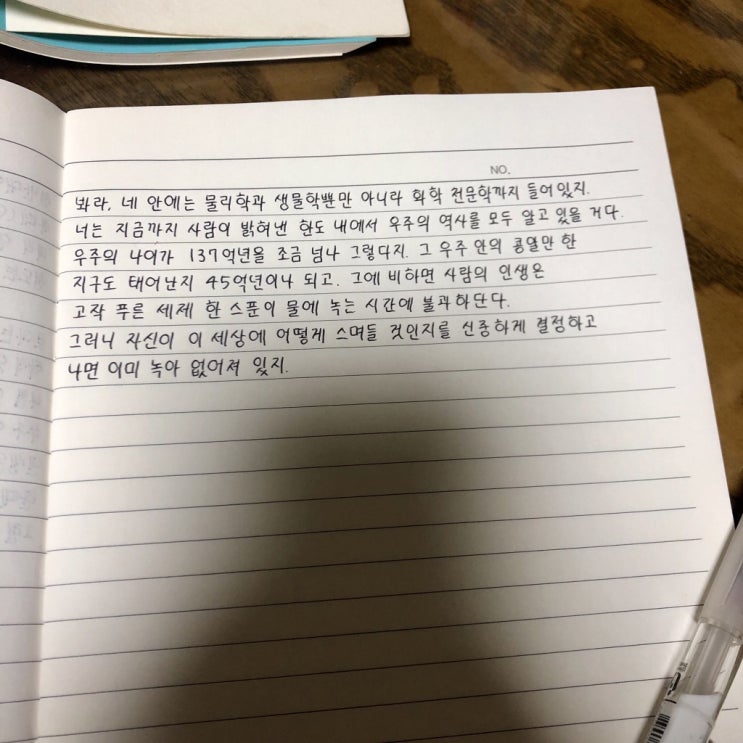 NO.
봐라, 네 안에는 물리학과 생물학뿐만 아니라 화학 천문학까지 들어있지.
너는 지금까지 사람이 밝혀낸 한도 내에서 우주의 역사를 모두 알고 있을 거다.
우주의 나이가 137억년을 조금 넘나 그렇다지. 그 우주 안의 콩알만 한
지구도 태어난지 45억년이나 되고. 그에 비하면 사람의 인생은
고작 푸른 세제 한 스푼이 물에 녹는 시간에 불과하단다.
그러니 자신이 이 세상에 어떻게 스며들 것인지를 신중하게 결정하고
나면 이미 녹아 없어져 있지.